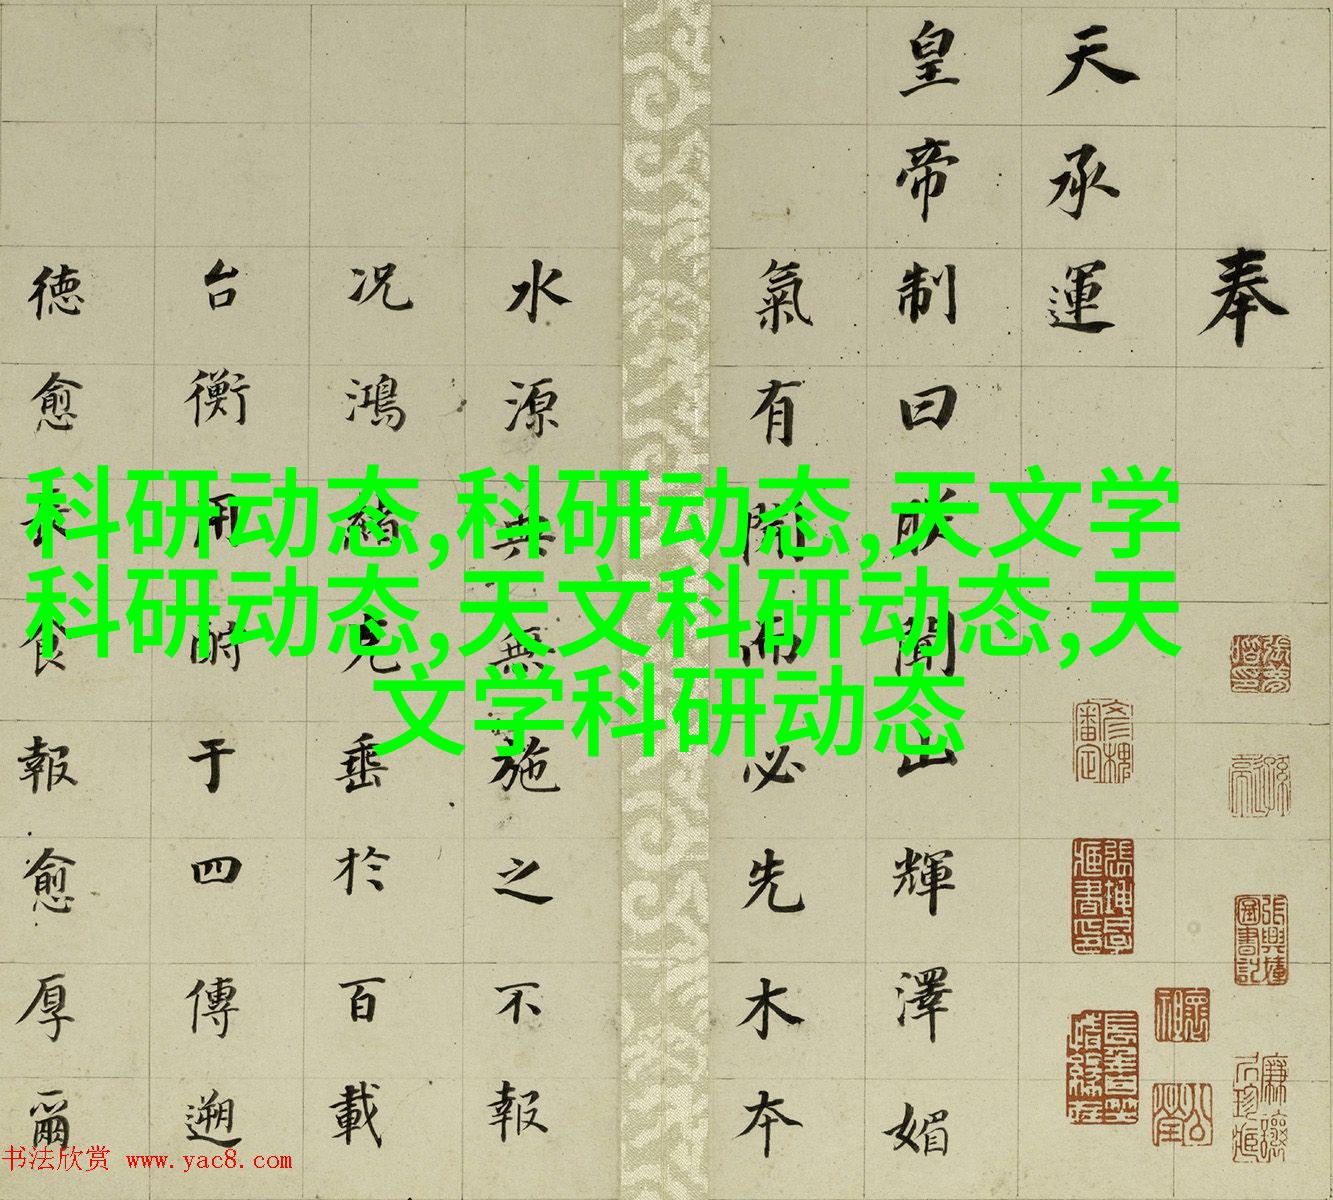 奉
天承運
皇帝制曰朕聞山輝澤媚
氣有開而必先木本
水源共無施之不報
况鴻緒克垂於百載
台衡用酬于四傳遡
德愈食報愈厚爾
科研动态,科研动态,天文学
科研动态,天文科研动态,天
文学科研动态
书法欣赏 www.yac8.com